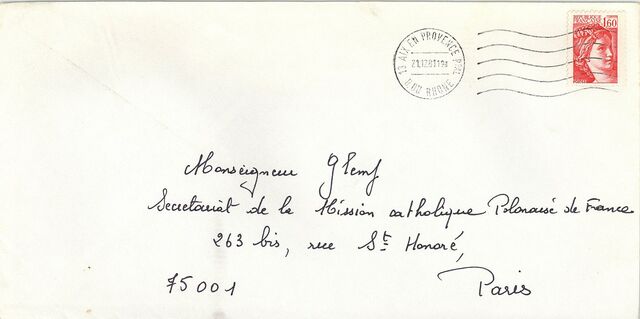 1,60
13 AIX EN PROVENCE PPAL
21.12.81 19H
B. DU RHONE
Monseigneur Glemp
Secretariat de la Mission catholique Polonaise de France
263 bis, rue St Honoré,
75001 Paris